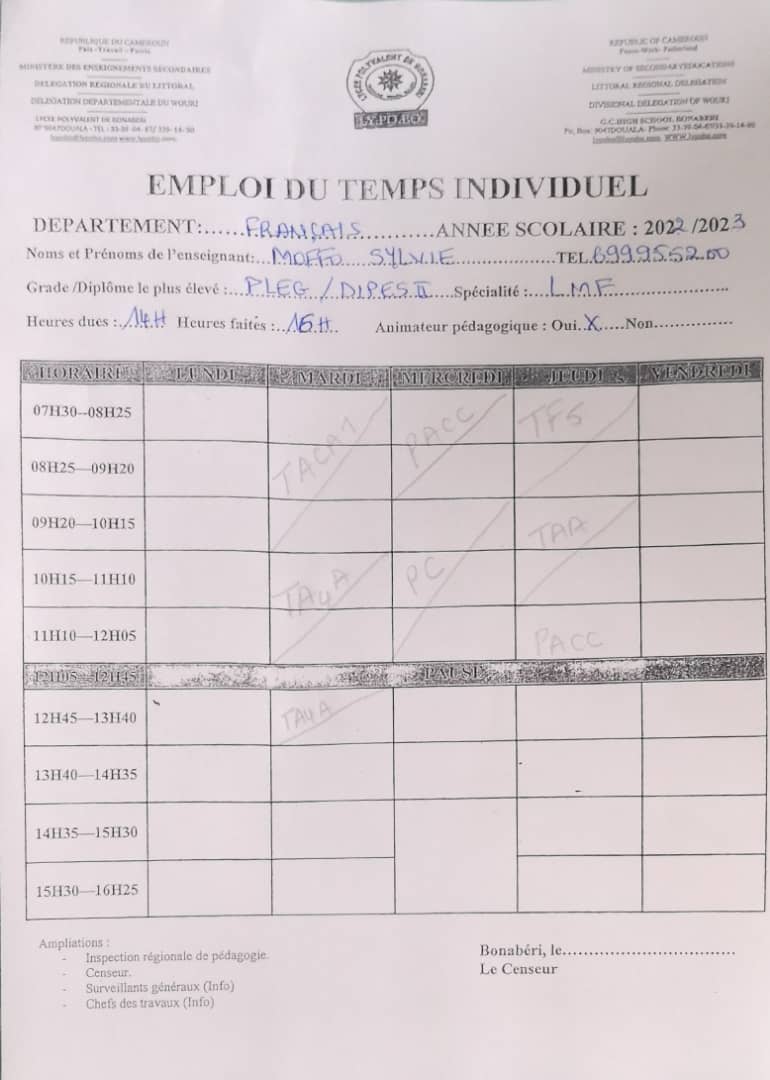 REPUBLIQUE DU CAMEROUN
Paix-Travail-Patrie
MINISTERE DES ENSEIGNEMENTS SECONDAIRES
DELEGATION REGIONALE DU LITTORAL
DELEGATION DEPARTEMENTALE DU WOURI
LYCEE POLYVALENT DE BONABERI
REPUBLIC OF CAMEROON
Peace-Work-Fatherland
MINISTRY OF SECONDARY EDUCATIONS
LITTORAL REGIONAL DELEGATION
DIVISIONAL DELEGATION OF WOURI
G.C.HIGH SCHOOL BONABERI
LYCEE POLYVALENT DE BONABERI
LY.PO.BO.
EMPLOI DU TEMPS INDIVIDUEL
DEPARTEMENT:......FRANÇAIS..........ANNEE SCOLAIRE : 2022/2023
Noms et Prénoms de l'enseignant:...MOFFO SYLVIE....................TEL.699955200
Grade /Diplôme le plus élevé :...PLEG / DIPES II....Spécialité :...L.M.F........................
Heures dues :..14H Heures faites :..16H.. Animateur pédagogique : Oui..X.....Non...............
HORAIRE LUNDI MARDI MERCREDI JEUDI VENDREDI
07H30--08H25 TACA1 PACC TF5
08H25—09H20
09H20—10H15 TAA
10H15—11H10 TA4A PC
11H10—12H05 PACC
12H05—12H45 PAUSE
12H45—13H40 TA4A
13H40—14H35
14H35—15H30
15H30—16H25
Ampliations :
- Inspection régionale de pédagogie.
- Censeur.
- Surveillants généraux (Info)
- Chefs des travaux (Info)
Bonabéri, le..................................
Le Censeur